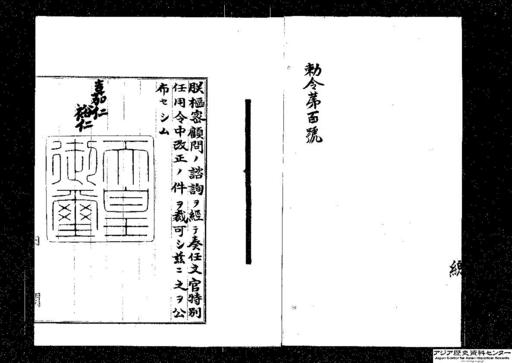 勅令第百號
朕樞密顧問ノ諮詢ヲ經テ奏任文官特別
任用令中改正ノ件ヲ裁可シ茲ニ之ヲ公
布セシム
嘉仁
裕仁
天皇
御璽
アジア歴史資料センター
Japan Center for Asian Historical Records